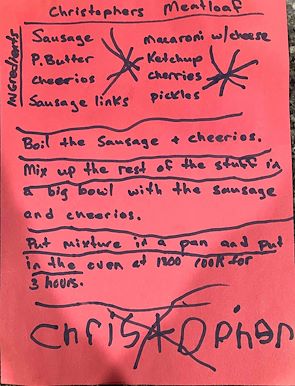 Christophers Meatloaf
Ingredients
Sausage
P.Butter
cheerios
Sausage links
macaroni w/cheese
Ketchup
cherries
pickles
Boil the Sausage + cheerios.
Mix up the rest of the stuff in
a big bowl with the sausage
and cheerios.
Put mixture in a pan and put
in the oven at 1800 cook for
3 hours.
Christopher